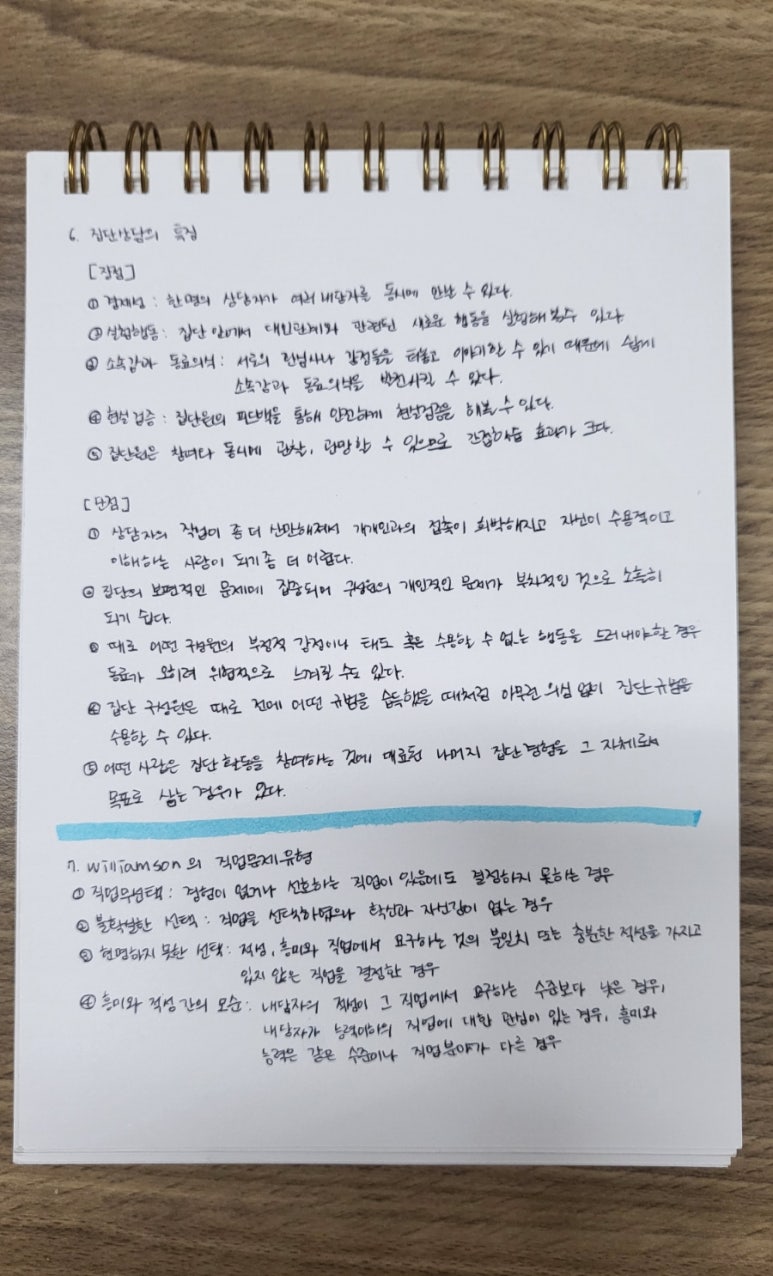 6. 집단상담의 특징
[장점]
① 경제성 : 한명의 상담자가 여러 내담자를 동시에 만날 수 있다.
② 실험행동 : 집단 안에서 대인관계와 관련된 새로운 행동을 실험해볼수 있다
③ 소속감과 동료의식 : 서로의 관심사나 감정들을 터놓고 이야기할 수 있기 때문에 쉽게
소속감과 동료의식을 발전시킬 수 있다.
④ 현실검증 : 집단원의 피드백을 통해 안전하게 현실검증을 해볼 수 있다.
⑤ 집단원은 참여와 동시에 관찰, 관망할 수 있으므로 간접학습 효과가 크다.
[단점]
① 상담자의 작업이 좀 더 산만해져서 개개인과의 접촉이 희박해지고 자신이 수용적이고
이해하는 사람이 되기 좀 더 어렵다.
② 집단의 보편적인 문제에 집중되어 구성원의 개인적인 문제가 부차적인 것으로 소홀히
되기 쉽다.
③ 때로 어떤 구성원의 부정적 감정이나 태도 혹은 수용할 수 없는 행동을 드러내야할 경우
동료가 오히려 위협적으로 느껴질 수도 있다.
④ 집단 구성원은 때로 전에 어떤 규범을 습득했을 때처럼 아무런 의심 없이 집단규범을
수용할 수 있다.
⑤ 어떤 사람은 집단 활동을 참여하는 것에 매료된 나머지 집단경험을 그 자체로써
목표로 삼는 경우가 있다.
7. Williamson의 직업문제유형
① 직업무선택 : 경험이 없거나 선호하는 직업이 있음에도 결정하지 못하는 경우
② 불확실한 선택 : 직업을 선택하였으나 확신과 자신감이 없는 경우
③ 현명하지 못한 선택 : 적성, 흥미와 직업에서 요구하는 것의 불일치 또는 충분한 적성을 가지고
있지 않은 직업을 결정한 경우
④ 흥미와 적성 간의 모순 : 내담자의 적성이 그 직업에서 요구하는 수준보다 낮은 경우,
내담자가 능력이하의 직업에 대한 관심이 있는 경우, 흥미와
능력은 같은 수준이나 직업분야가 다른 경우